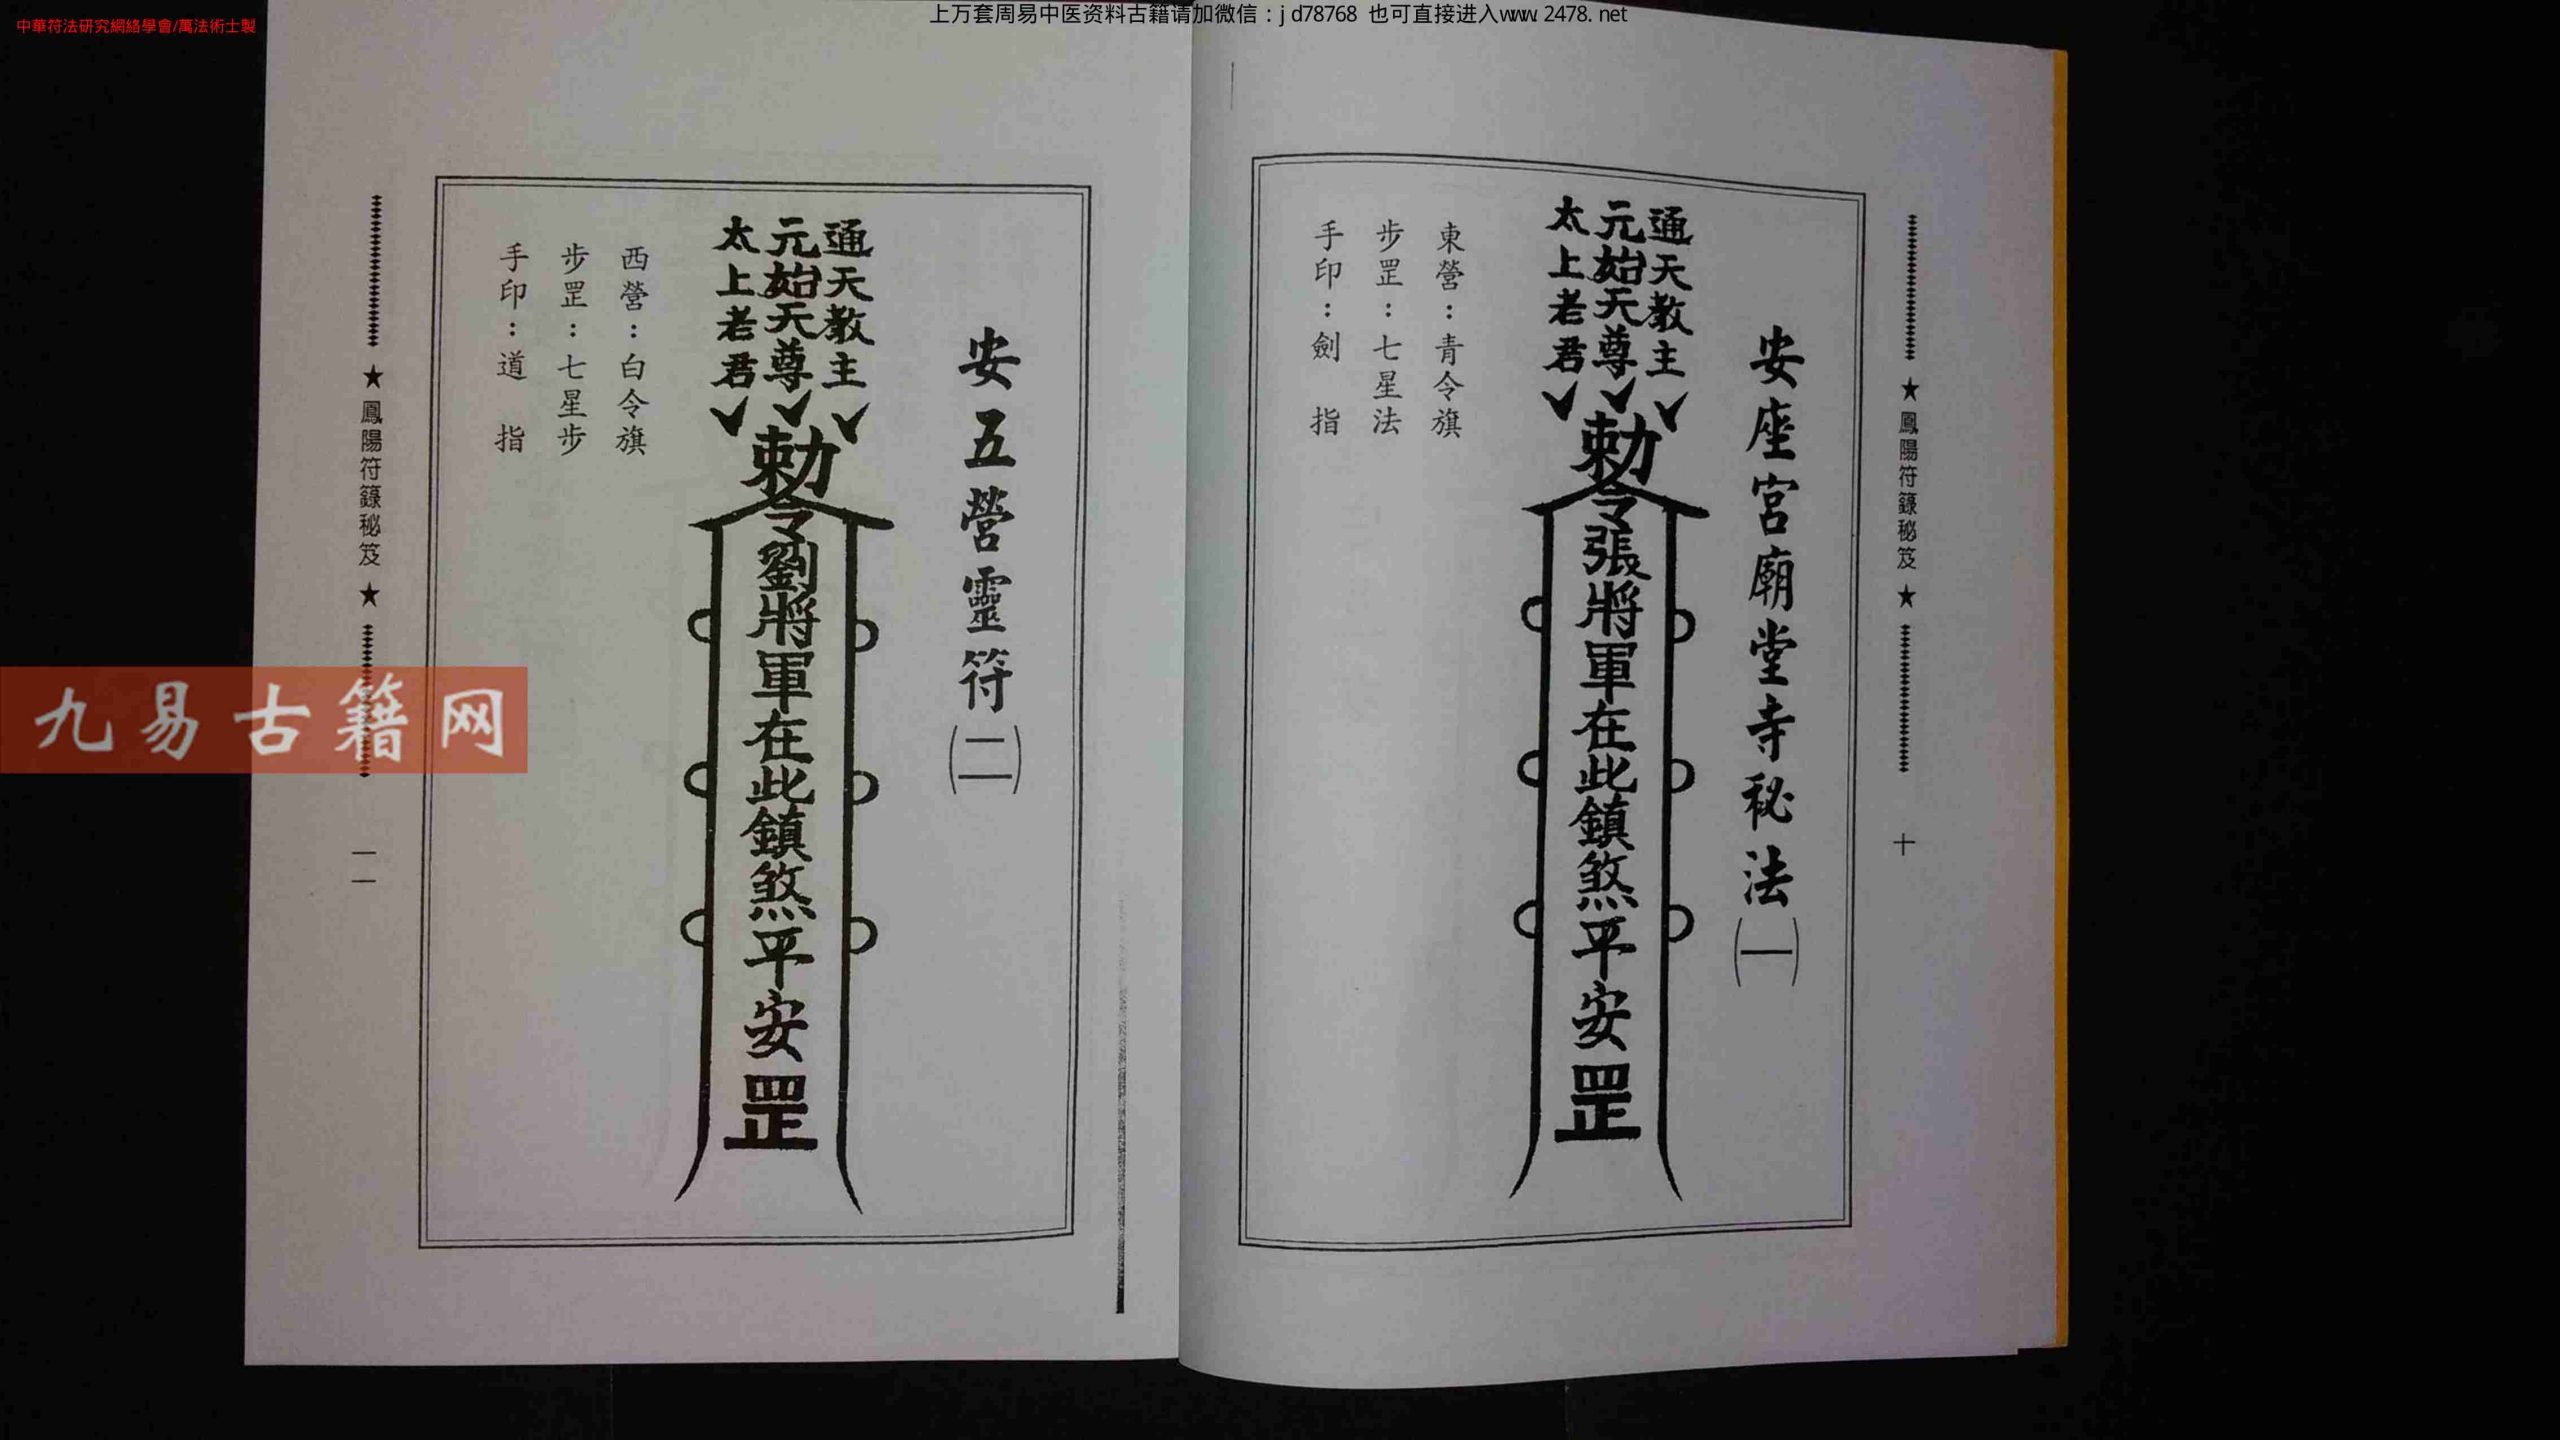 中華符法研究網絡學會/萬法術士製
上万套周易中医资料古籍请加微信：jd78768 也可直接进入www.2478.net
★鳳陽符籙秘笈★
十
安座宮廟堂寺秘法(一)
通天教主
元始天尊
太上老君
勅令張將軍在此鎮煞平安罡
東營：青令旗
步罡：七星法
手印：劍指
安五營靈符(二)
通天教主
元始天尊
太上老君
勅令劉將軍在此鎮煞平安罡
西營：白令旗
步罡：七星步
手印：道指
★鳳陽符籙秘笈★
一一
九易古籍网